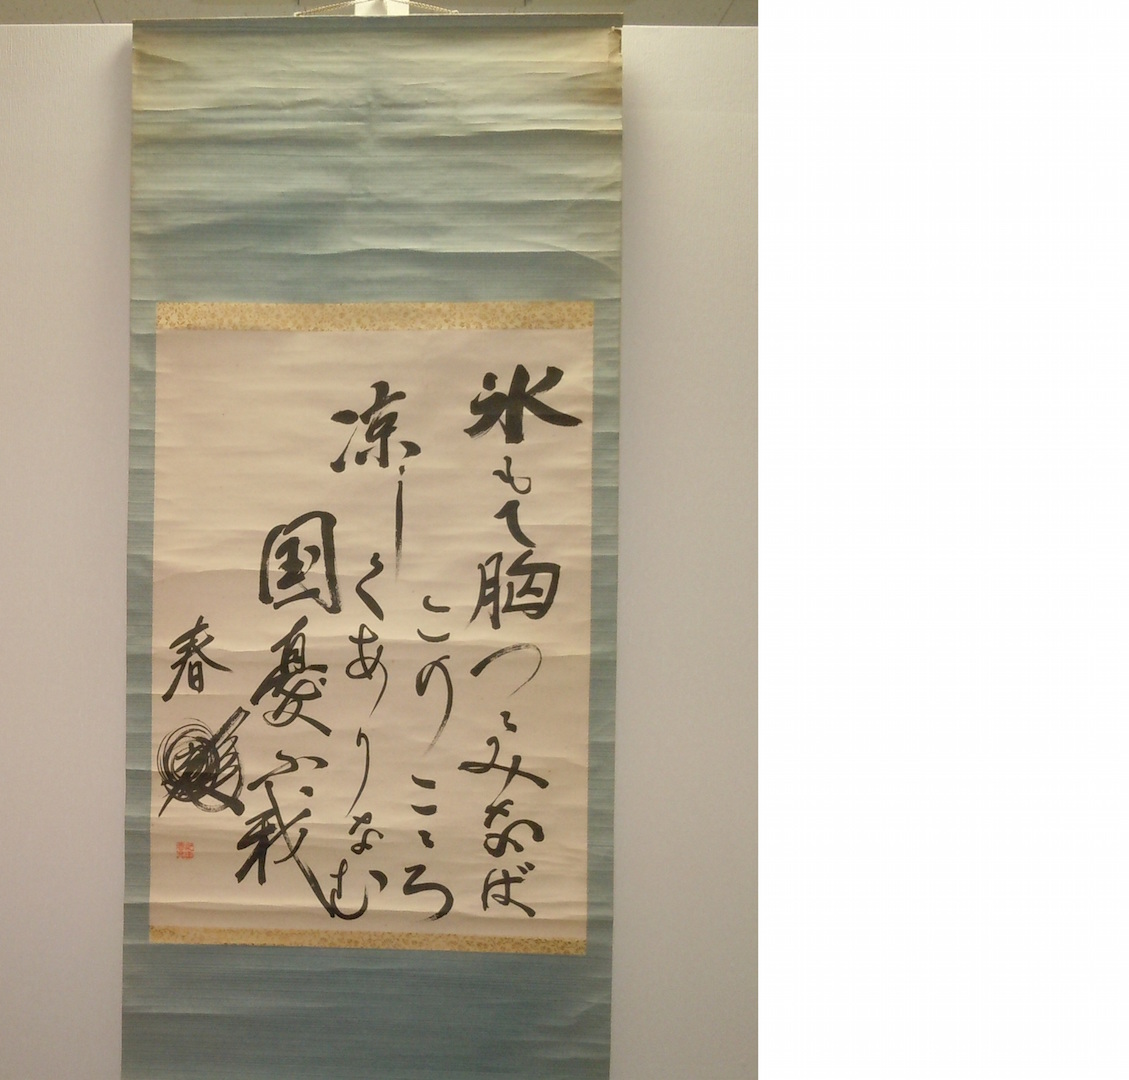 氷もて胸つゝみなば
このこゝろ
凉しくありなむ
国憂ふ我
春